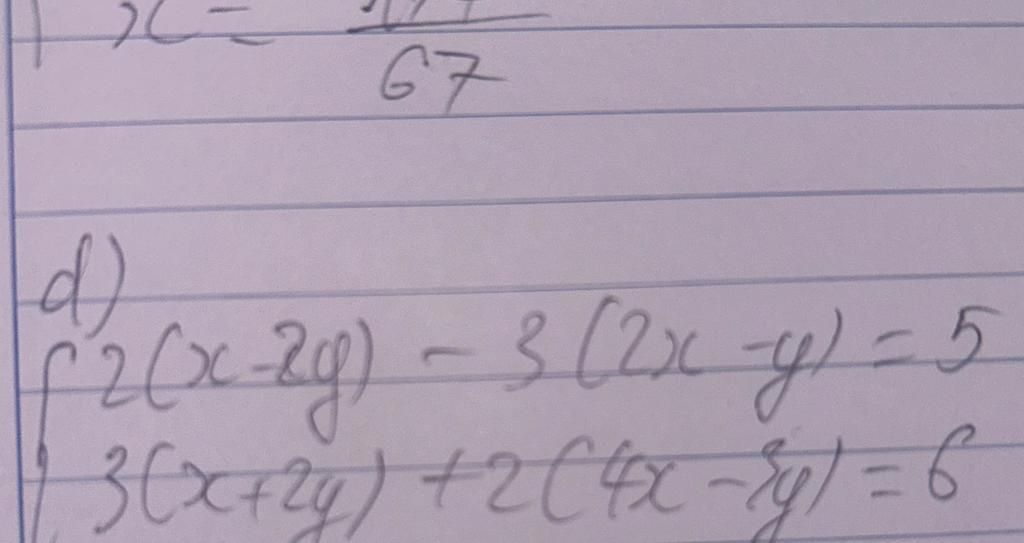 x =
67
d)
2(x-2y) - 3(2x-y) = 5
3(x+2y) + 2(4x-3y) = 6